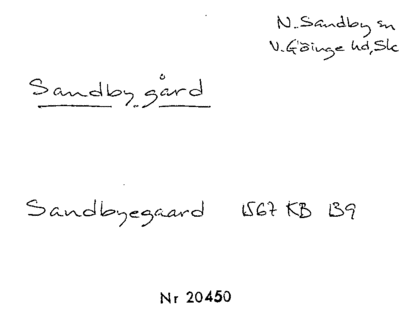 N. Sandby sn
V. Göinge hd, Sk
Sandby gård
Sandbyegaard 1567 KB 139
Nr 20450